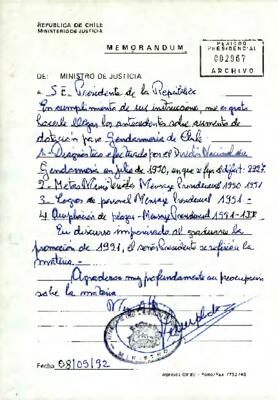 REPUBLICA DE CHILE
MINISTERIO DE JUSTICIA
MEMORANDUM
PERIODO
PRESIDENCIAL
002967
ARCHIVO
DE: MINISTRO DE JUSTICIA
A: S.E. Presidente de la República
En cumplimiento de sus instrucciones, me es grato
hacerle llegar los antecedentes sobre aumento de
dotación para Gendarmería de Chile
1- Diagnóstico efectuado por el Director Nacional de
Gendarmería en julio de 1990, en que se fija déficit: 2227.
2- Metas Mensaje Presidencial 1990 1991
3- Logros de personal Mensaje Presidencial 1991-
4- Ampliación de plazas - Mensaje Presidencial 1991-
En discurso improvisado al graduarse la
promoción de 1991, el señor Presidente se refirió a la
materia.-
Agradezco muy profundamente su preocupación
sobre la materia
MINISTRO
Fecha 08/09/92